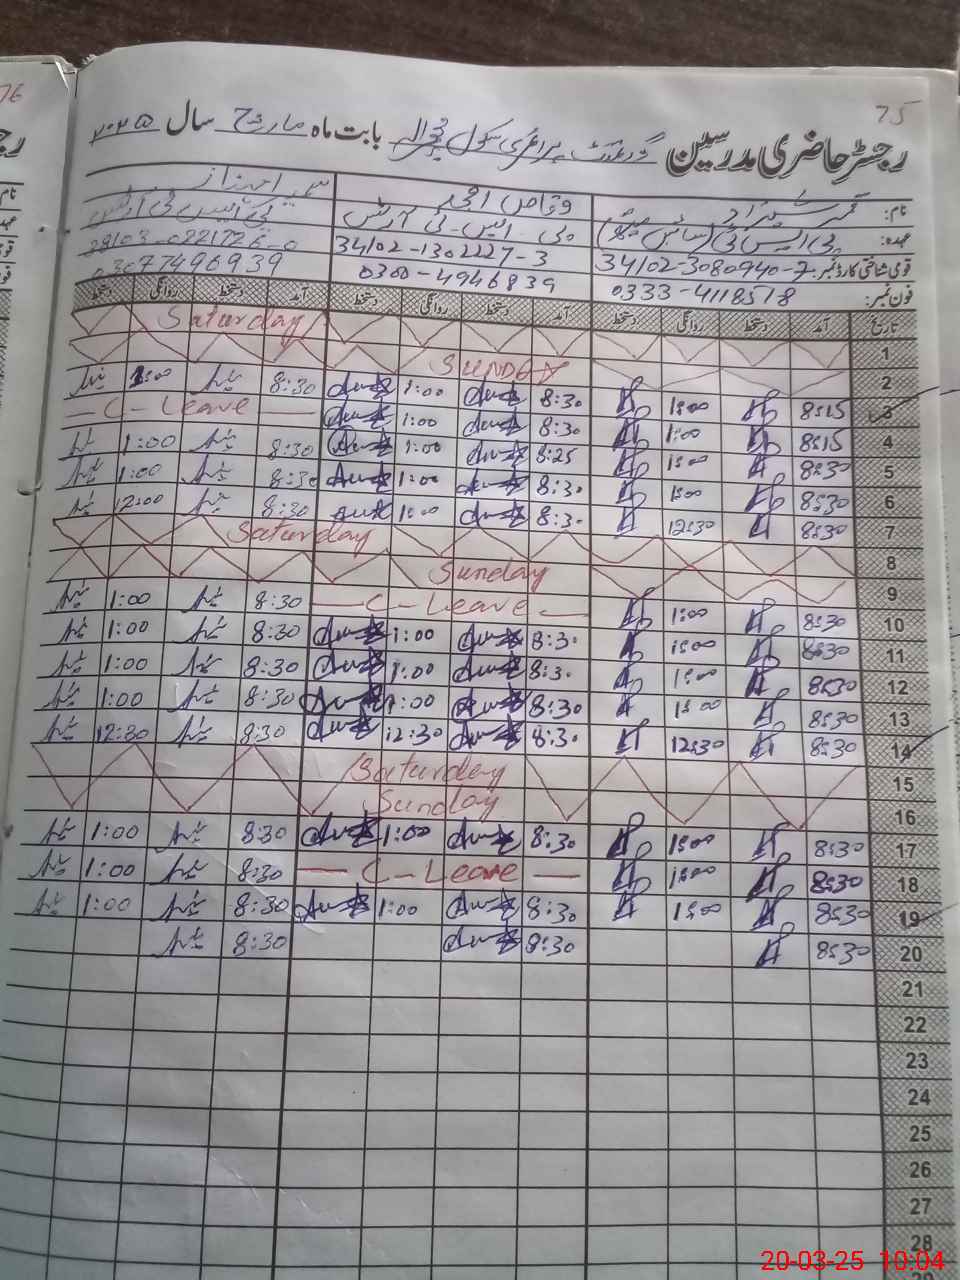 75
رجسٹر حاضری مدرسین گورنمنٹ پرائمری سکول بابت ماہ مارچ سال ۲۰۲۵
نام: قمر شہزاد وقاص امجد
عہدہ: پی ایس ٹی پی۔ایس۔ٹی آرٹس پی ایس ٹی آرٹس
قومی شناختی کارڈ نمبر: 34102-3080940-7 34102-1302227-3
فون نمبر: 0333-4118518 0300-4946839 03077496939
تاریخ آمد دستخط روانگی دستخط آمد دستخط روانگی دستخط آمد دستخط روانگی دستخط
1 Saturday
2 SUNDAY
3 8:15 1:00 8:30 1:00 8:30 1:00
4 8:15 1:00 8:30 1:00 C - Leave
5 8:30 1:00 8:25 1:00 8:30 1:00
6 8:30 1:00 8:30 1:00 8:30 1:00
7 8:30 12:30 8:30 1:00 8:30 12:00
8 Saturday
9 Sunday
10 8:30 1:00 C - Leave 8:30 1:00
11 8:30 1:00 8:30 1:00 8:30 1:00
12 8:30 1:00 8:30 1:00 8:30 1:00
13 8:30 1:00 8:30 1:00 8:30 1:00
14 8:30 12:30 8:30 12:30 8:30 12:30
15 Saturday
16 Sunday
17 8:30 1:00 8:30 1:00 8:30 1:00
18 8:30 1:00 C - Leave 8:30 1:00
19 8:30 1:00 8:30 1:00 8:30 1:00
20 8:30 8:30 8:30
21
22
23
24
25
26
27
28
20-03-25 10:04
76